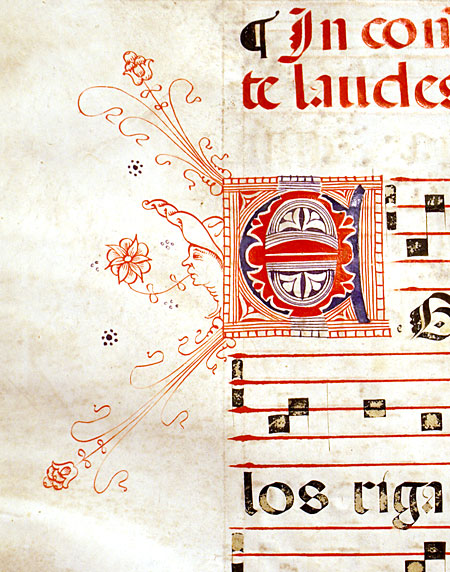 ¶ In con
te laudes
E
los riga